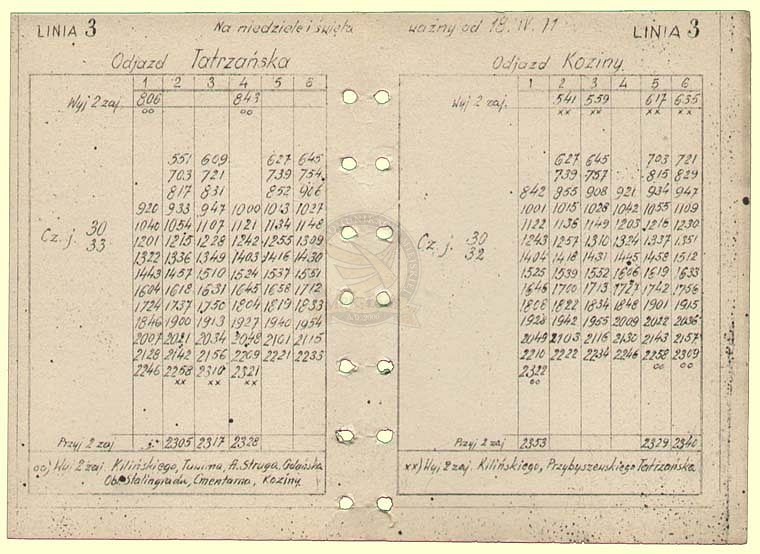 LINIA 3
Na niedziele i święta
Odjazd Tatrzańska
1 2 3 4 5 6
Wyj z zaj. 806 843
oo oo
551 609 627 645
703 721 739 754
817 831 852 906
920 933 947 1000 1013 1027
1040 1054 1107 1121 1134 1148
1201 1215 1228 1242 1255 1309
1322 1336 1349 1403 1416 1430
1443 1457 1510 1524 1537 1551
1604 1618 1631 1645 1658 1712
1724 1737 1750 1804 1819 1833
1846 1900 1913 1927 1940 1954
2007 2021 2034 2048 2101 2115
2128 2142 2156 2209 2221 2233
2246 2258 2310 2321
xx xx xx
Cz. j. 30
33
Przyj z zaj 2305 2317 2328
oo) Wyj z zaj. Kilińskiego, Tuwima, A. Struga, Gdańska
Obr. Stalingradu, Cmentarna, Koziny
ważny od 18. IV. 71
LINIA 3
Odjazd Koziny
1 2 3 4 5 6
Wyj z zaj. 541 559 617 635
xx xx xx xx
627 645 703 721
739 757 815 829
842 855 908 921 934 947
1001 1015 1028 1042 1055 1109
1122 1136 1149 1203 1216 1230
1243 1257 1310 1324 1337 1351
1404 1418 1431 1445 1458 1512
1525 1539 1552 1606 1619 1633
1646 1700 1713 1727 1742 1756
1808 1822 1834 1848 1901 1915
1928 1942 1955 2009 2022 2036
2049 2103 2116 2130 2143 2157
2210 2222 2234 2246 2258 2309
oo oo
2322
oo
Cz. j. 30
32
Przyj z zaj 2353 2329 2340
xx) Wyj z zaj. Kilińskiego, Przybyszewskiego Tatrzańska